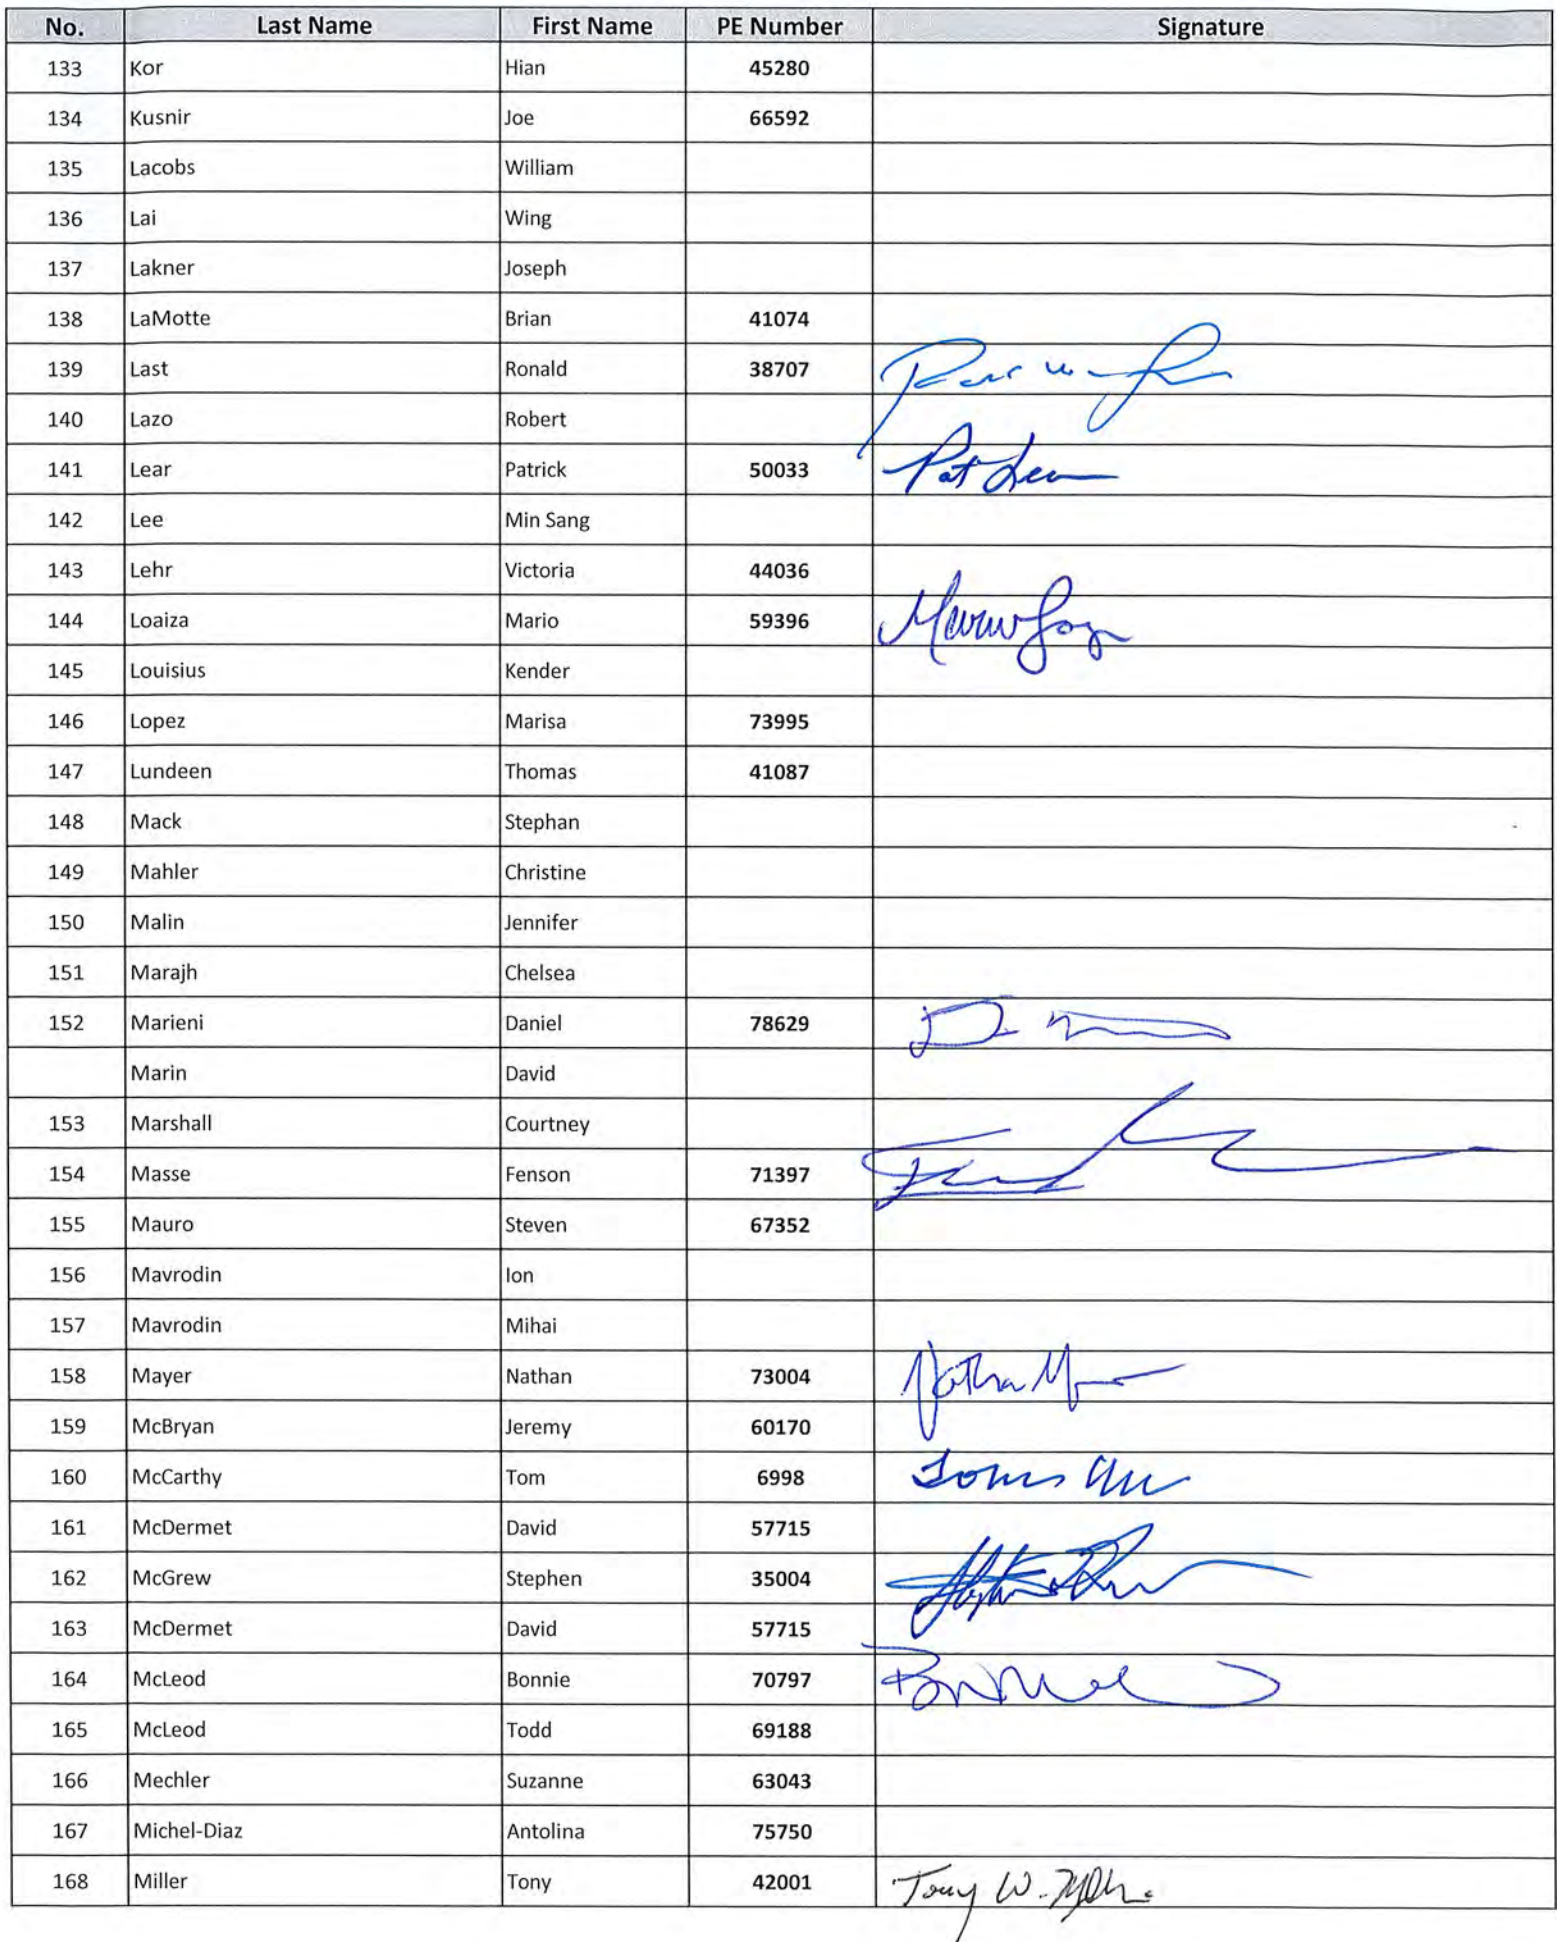 No. Last Name First Name PE Number Signature
133 Kor Hian 45280
134 Kusnir Joe 66592
135 Lacobs William
136 Lai Wing
137 Lakner Joseph
138 LaMotte Brian 41074
139 Last Ronald 38707
140 Lazo Robert
141 Lear Patrick 50033 Pat Lear
142 Lee Min Sang
143 Lehr Victoria 44036
144 Loaiza Mario 59396 Mario
145 Louisius Kender
146 Lopez Marisa 73995
147 Lundeen Thomas 41087
148 Mack Stephan
149 Mahler Christine
150 Malin Jennifer
151 Marajh Chelsea
152 Marieni Daniel 78629
Marin David
153 Marshall Courtney
154 Masse Fenson 71397
155 Mauro Steven 67352
156 Mavrodin Ion
157 Mavrodin Mihai
158 Mayer Nathan 73004
159 McBryan Jeremy 60170
160 McCarthy Tom 6998
161 McDermet David 57715
162 McGrew Stephen 35004
163 McDermet David 57715
164 McLeod Bonnie 70797
165 McLeod Todd 69188
166 Mechler Suzanne 63043
167 Michel-Diaz Antolina 75750
168 Miller Tony 42001 Tony W.